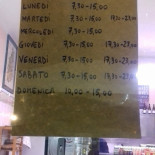 LUNEDÌ 7,30-15,00
MARTEDÌ 7,30-15,00 17,30-23,00
MERCOLEDÌ 7,30-15,00
GIOVEDÌ 7,30-15,00 17,30-23,00
VENERDÌ 7,30-15,00 17,30-23,00
SABATO 7,30-15,00 17,30-23,00
DOMENICA 10,00-15,00